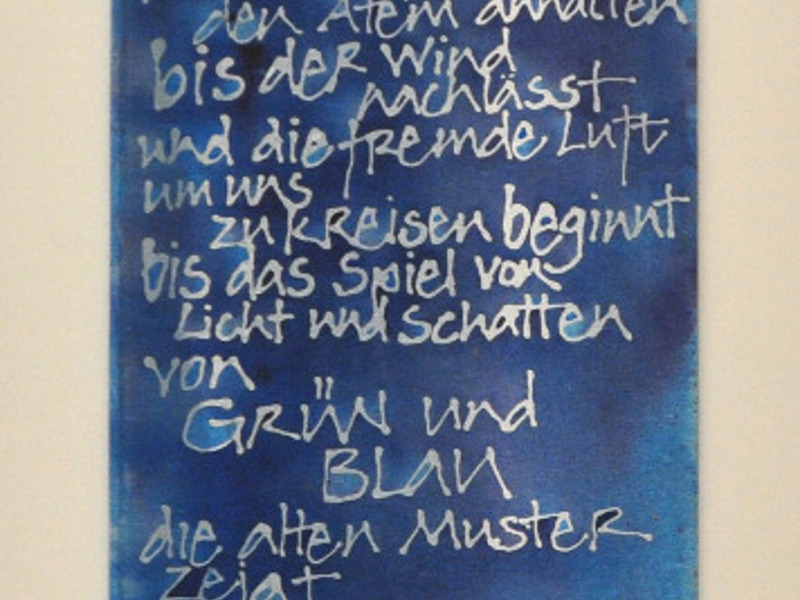 den Atem anhalten
bis der Wind
nachlässt
und die fremde Luft
um uns
zu kreisen beginnt
bis das Spiel von
Licht und Schatten
von
GRÜN und
BLAU
die alten Muster
zeigt